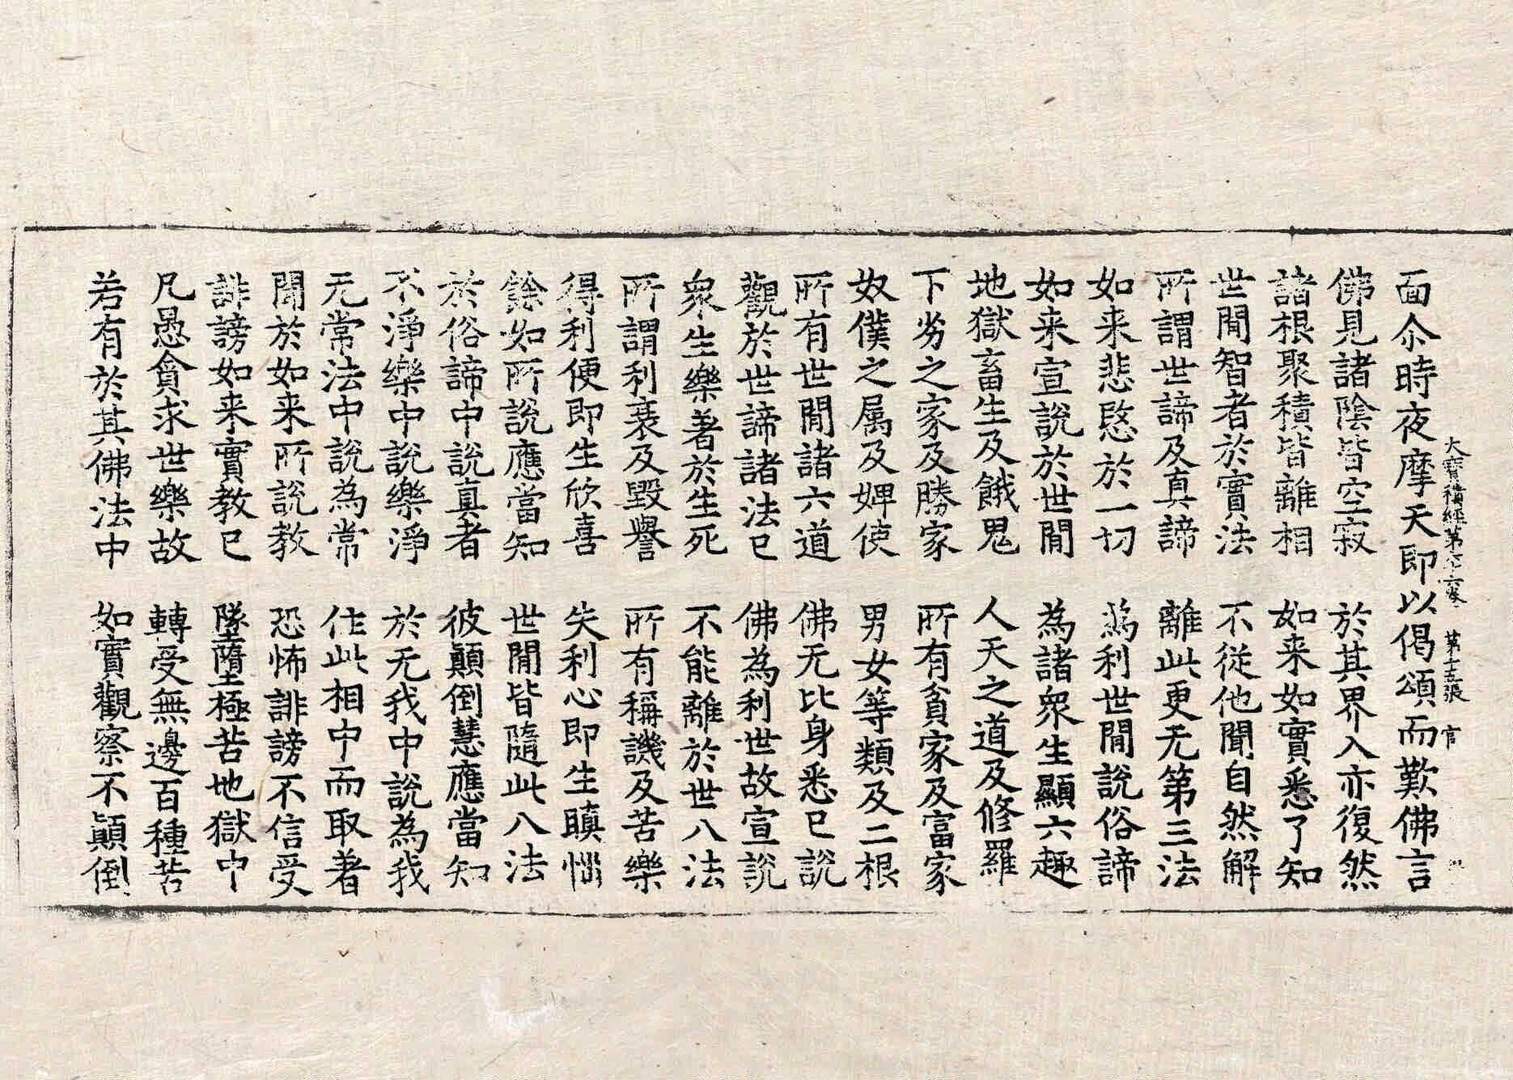 大寶積經第六十六卷 第十五張 官
面尒時夜摩天即以偈頌而歎佛言
佛見諸陰皆空寂 於其界入亦復然
諸根聚積皆離相 如来如實悉了知
世閒智者於實法 不從他聞自然解
所謂世諦及真諦 離此更无第三法
如来悲愍於一切 為利世閒說俗諦
如来宣說於世閒 為諸衆生顯六趣
地獄畜生及餓鬼 人天之道及修羅
下劣之家及勝家 所有貧家及富家
奴僕之属及婢使 男女等類及二根
所有世閒諸六道 佛无比身悉已說
觀於世諦諸法已 佛為利世故宣說
衆生樂著於生死 不能離於世八法
所謂利衰及毀譽 所有稱譏及苦樂
得利便即生欣喜 失利心即生瞋惱
餘如所說應當知 世閒皆隨此八法
於俗諦中說真者 彼顛倒慧應當知
不淨樂中說樂淨 於无我中說為我
无常法中說為常 住此相中而取著
聞於如来所說教 恐怖誹謗不信受
誹謗如来實教已 墜墮極苦地獄中
凡愚貪求世樂故 轉受無邊百種苦
若有於其佛法中 如實觀察不顛倒